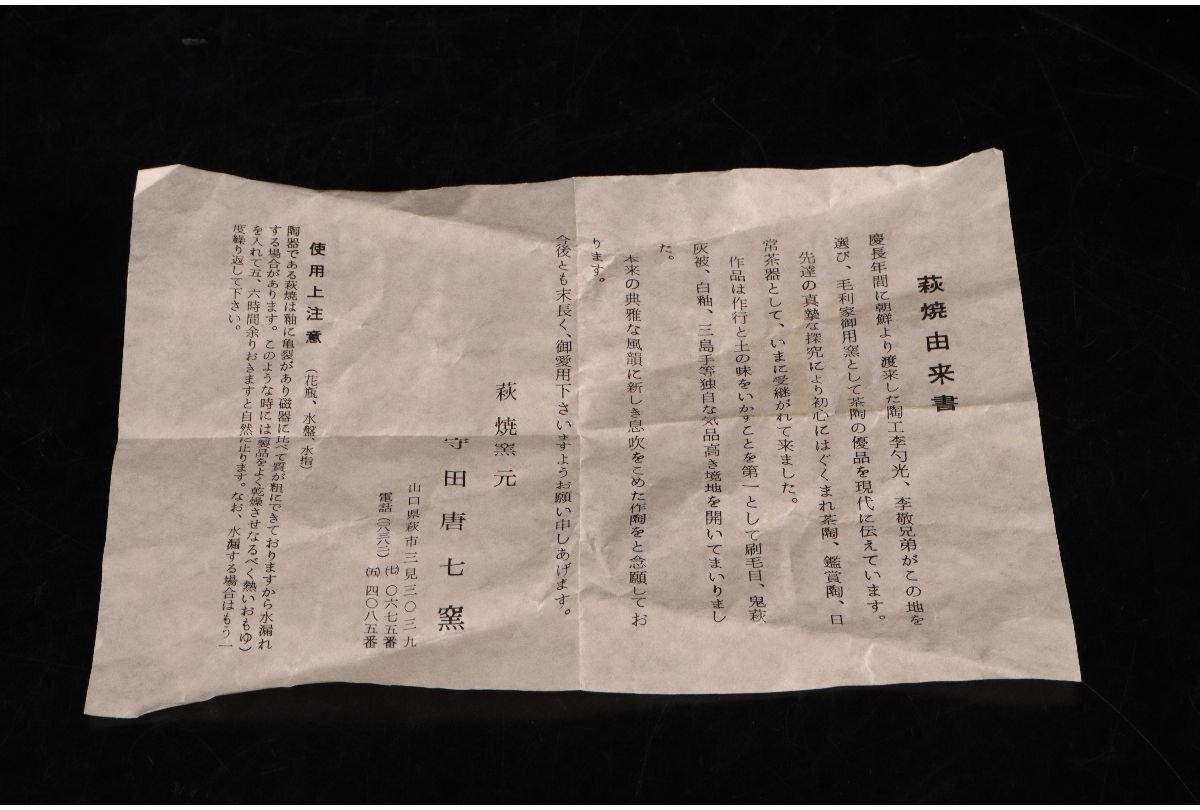 萩焼由来書
慶長年間に朝鮮より渡来した陶工李勺光、李敬兄弟がこの地を
選び、毛利家御用窯として茶陶の優品を現代に伝えています。
先達の真摯な探究により初心にはぐくまれ茶陶、鑑賞陶、日
常茶器として、いまに受継がれて来ました。
作品は作行と土の味をいかすことを第一として刷毛目、鬼萩
灰被、白釉、三島手等独自な気品高き境地を開いてまいりまし
た。
本来の典雅な風韻に新しき息吹をこめた作陶をと念願してお
ります。
今後とも末長く、御愛用下さいますようお願い申しあげます。
萩焼窯元
守田唐七窯
山口県萩市三見三〇三九
電話(〇八三八二)(七)〇六七五番
(五)四〇八五番
使用上注意(花瓶、水盤、水指)
陶器である萩焼は釉に亀裂があり磁器に比べて質が粗にできておりますから水漏れ
する場合があります。このような時には製品をよく乾燥させなるべく熱いおもゆ)
を入れて五、六時間余りおきますと自然に止ります。なお、水漏する場合はもう一
度繰り返して下さい。